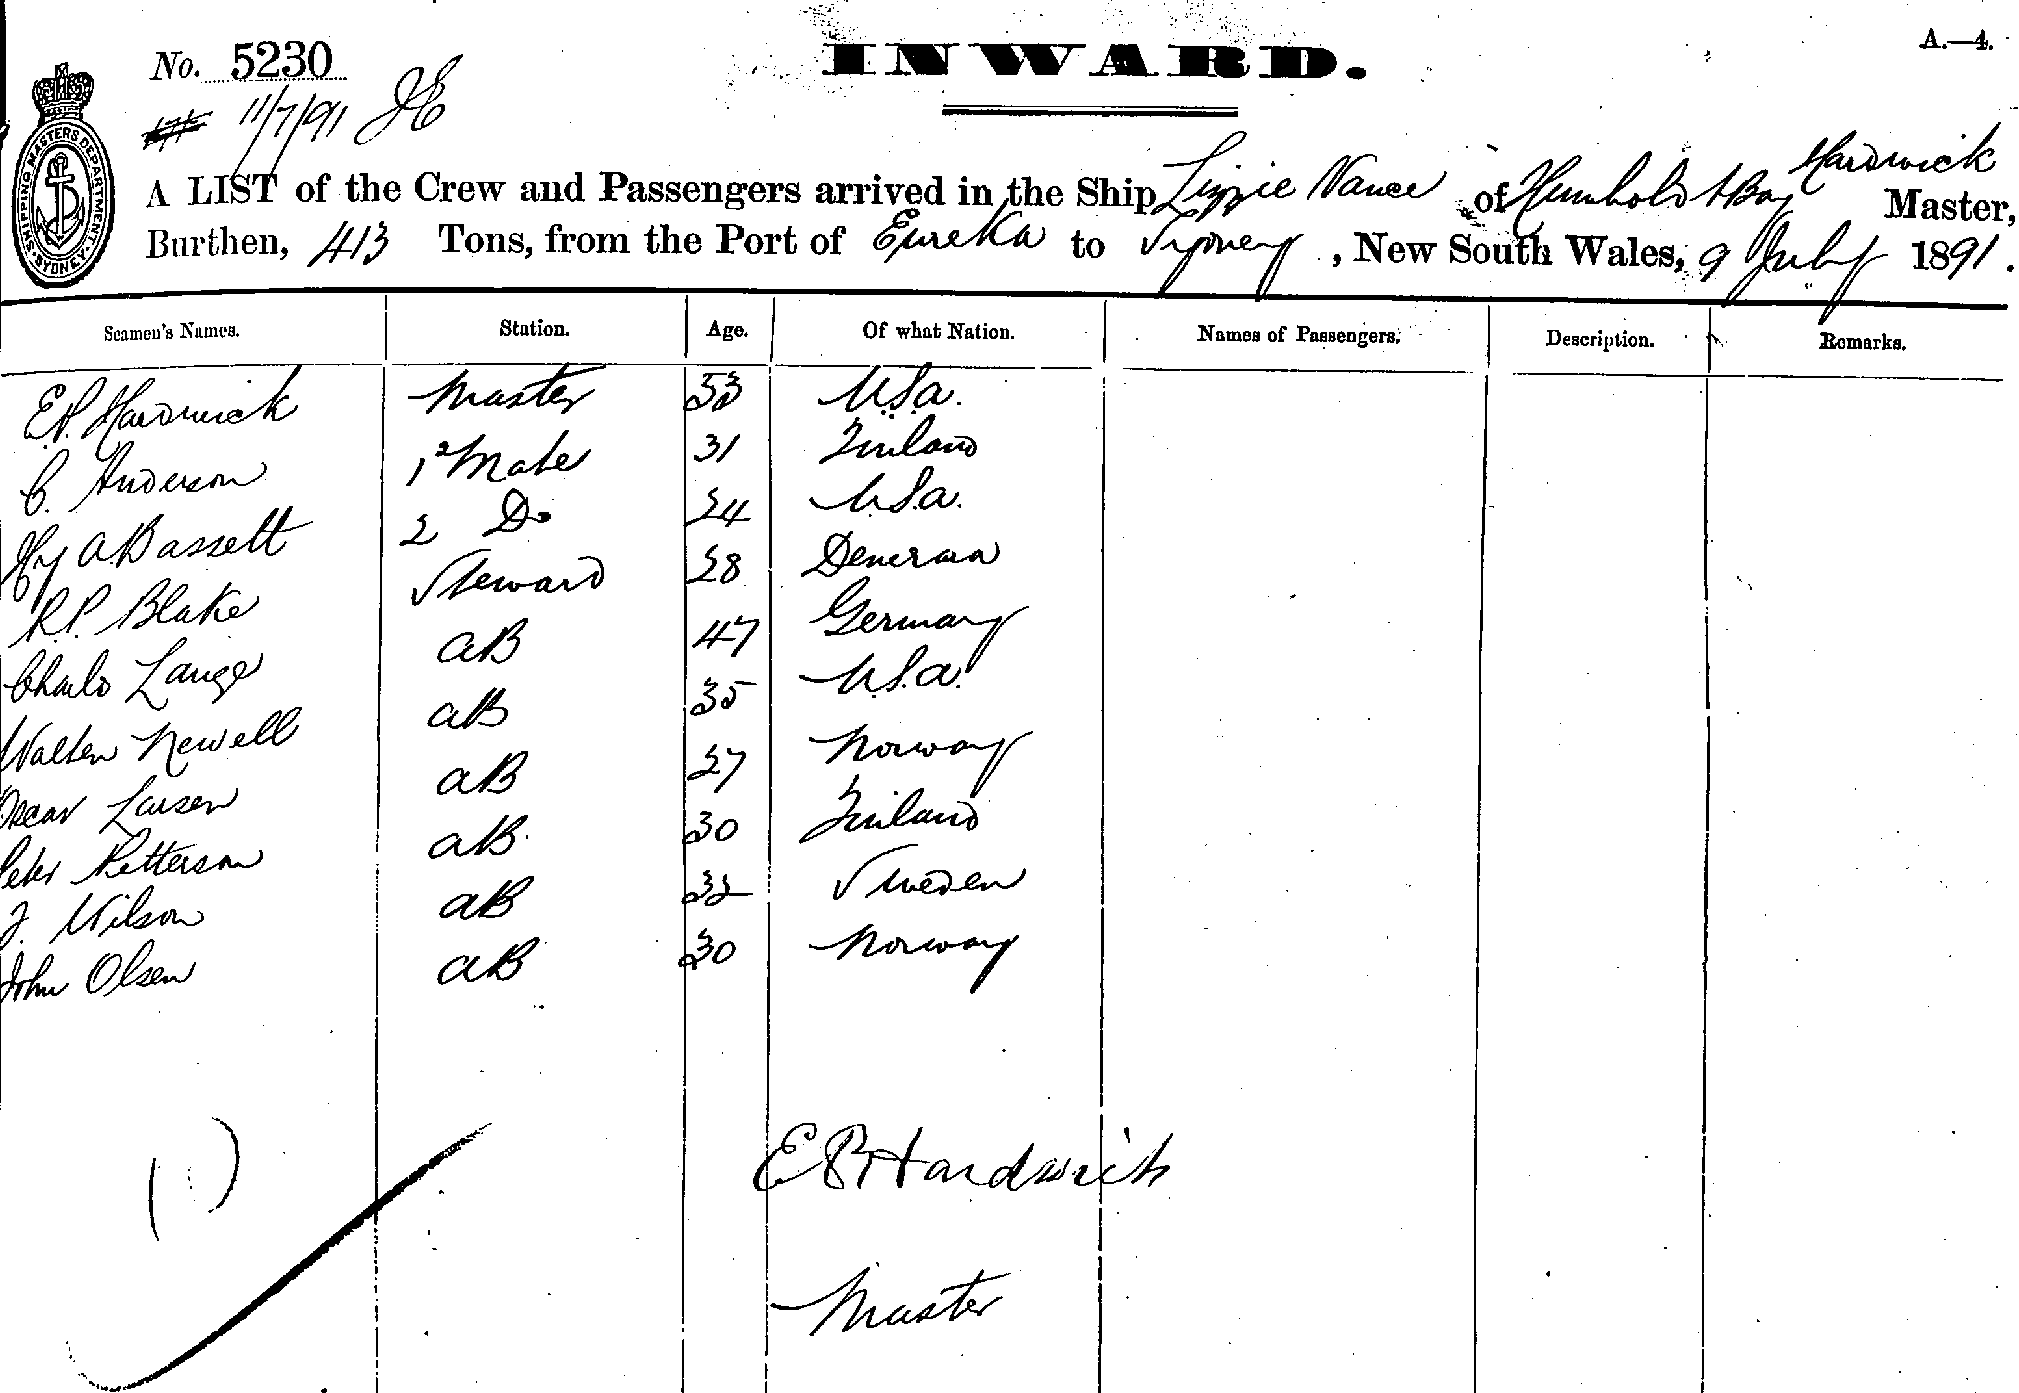 INWARD.
A.—4.
No. 5230
11/7/91 JE
SHIPPING MASTERS DEPARTMENT. SYDNEY.
A LIST of the Crew and Passengers arrived in the Ship Lizzie Vance of Humboldt Bay Hardwick Master,
Burthen, 413 Tons, from the Port of Eureka to Sydney, New South Wales, 9 July 1891.
Seamen's Names. Station. Age. Of what Nation. Names of Passengers. Description. Remarks.
E.P. Hardwick Master 53 U.S.a.
C. Anderson 1st Mate 31 Finland
Hy A Bassett 2 Do 24 U.S.a.
R.P. Blake Steward 28 Demerara
Charls Lange aB 47 Germany
Walter Newell aB 35 U.S.a.
Oscar Larsen aB 27 Norway
Peter Petterson aB. 30 Finland
J. Wilson aB 32 Sweden
John Olsen aB 30 Norway
E P Hardwick
Master